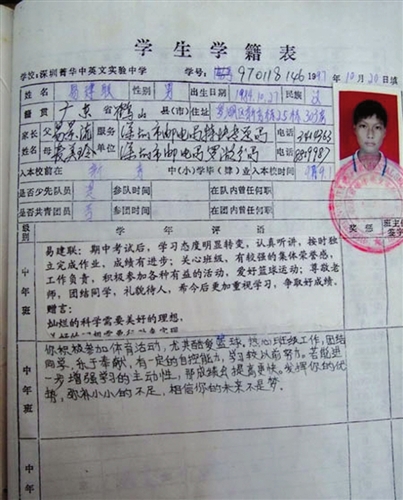 学生学籍表
学校:深圳菁华中英文实验中学 学号: 970118146 1997年10月20日填
姓名 易建联 性别 男 出生日期 1984.10.27 民族 汉
籍贯 广东省鹤山县(市) 住址
家长 父 易景流 服务单位 深圳市邮电局 电话
姓名 母 麦美玲 深圳市邮电局 电话
入本校前在 中(小)学毕(肄)业入本校时间
是否少先队员 是 参队时间 在队内曾任何职
是否共青团员 参团时间 在团内曾任何职 奖惩
级别 学年评语
中年班
易建联:期中考试后,学习态度明显转变,认真听讲,按时独
立完成作业,成绩有进步;关心班级,有较强的集体荣誉感,
工作负责,积极参加各种有益的活动,爱好篮球运动;尊敬老
师,团结同学,礼貌待人,希今后更加重视学习,争取好成绩。
赠言:
灿烂的科学需要美好的理想,
中年班
你积极参加体育活动,尤其酷爱篮球,热心班级工作,团结
同学,乐于奉献,有一定的自控能力,学习较以前努力。若能进
一步增强学习的主动性,那成绩会提高更快。发挥你的优
势,弥补小小的不足,相信你的未来不是梦。
中年